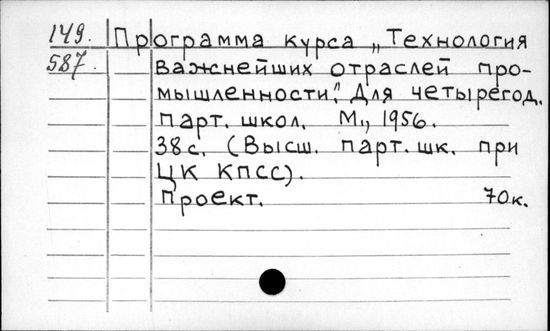 149. Программа курса „Технология
587. важнейших отраслей про-
мышленности". Для четырегод.
парт. школ. М., 1956.
38 с. (Высш. парт. шк. при
ЦК КПСС).
Проект. 70 к.